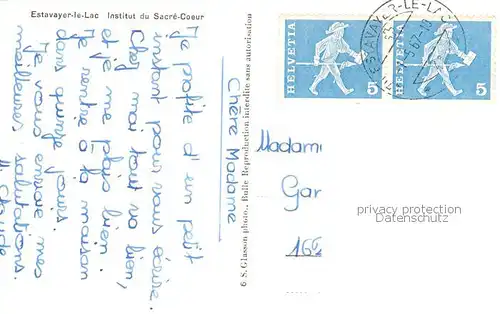 Estavayer-le-Lac Institut du Sacré-Coeur
Chère Madame
Je profite d'un petit
instant pour vous écrire.
Chez moi tout va bien,
et je me plais bien.
Je rentre à la maison
dans quinze jours.
Je vous envoie mes
meilleures salutations.
Claude
6 S. Glasson photo., Bulle Reproduction interdite sans autorisation
ESTAVAYER-LE-LAC
HELVETIA 5
HELVETIA 5
Madame
Gar
privacy protection
Datenschutz